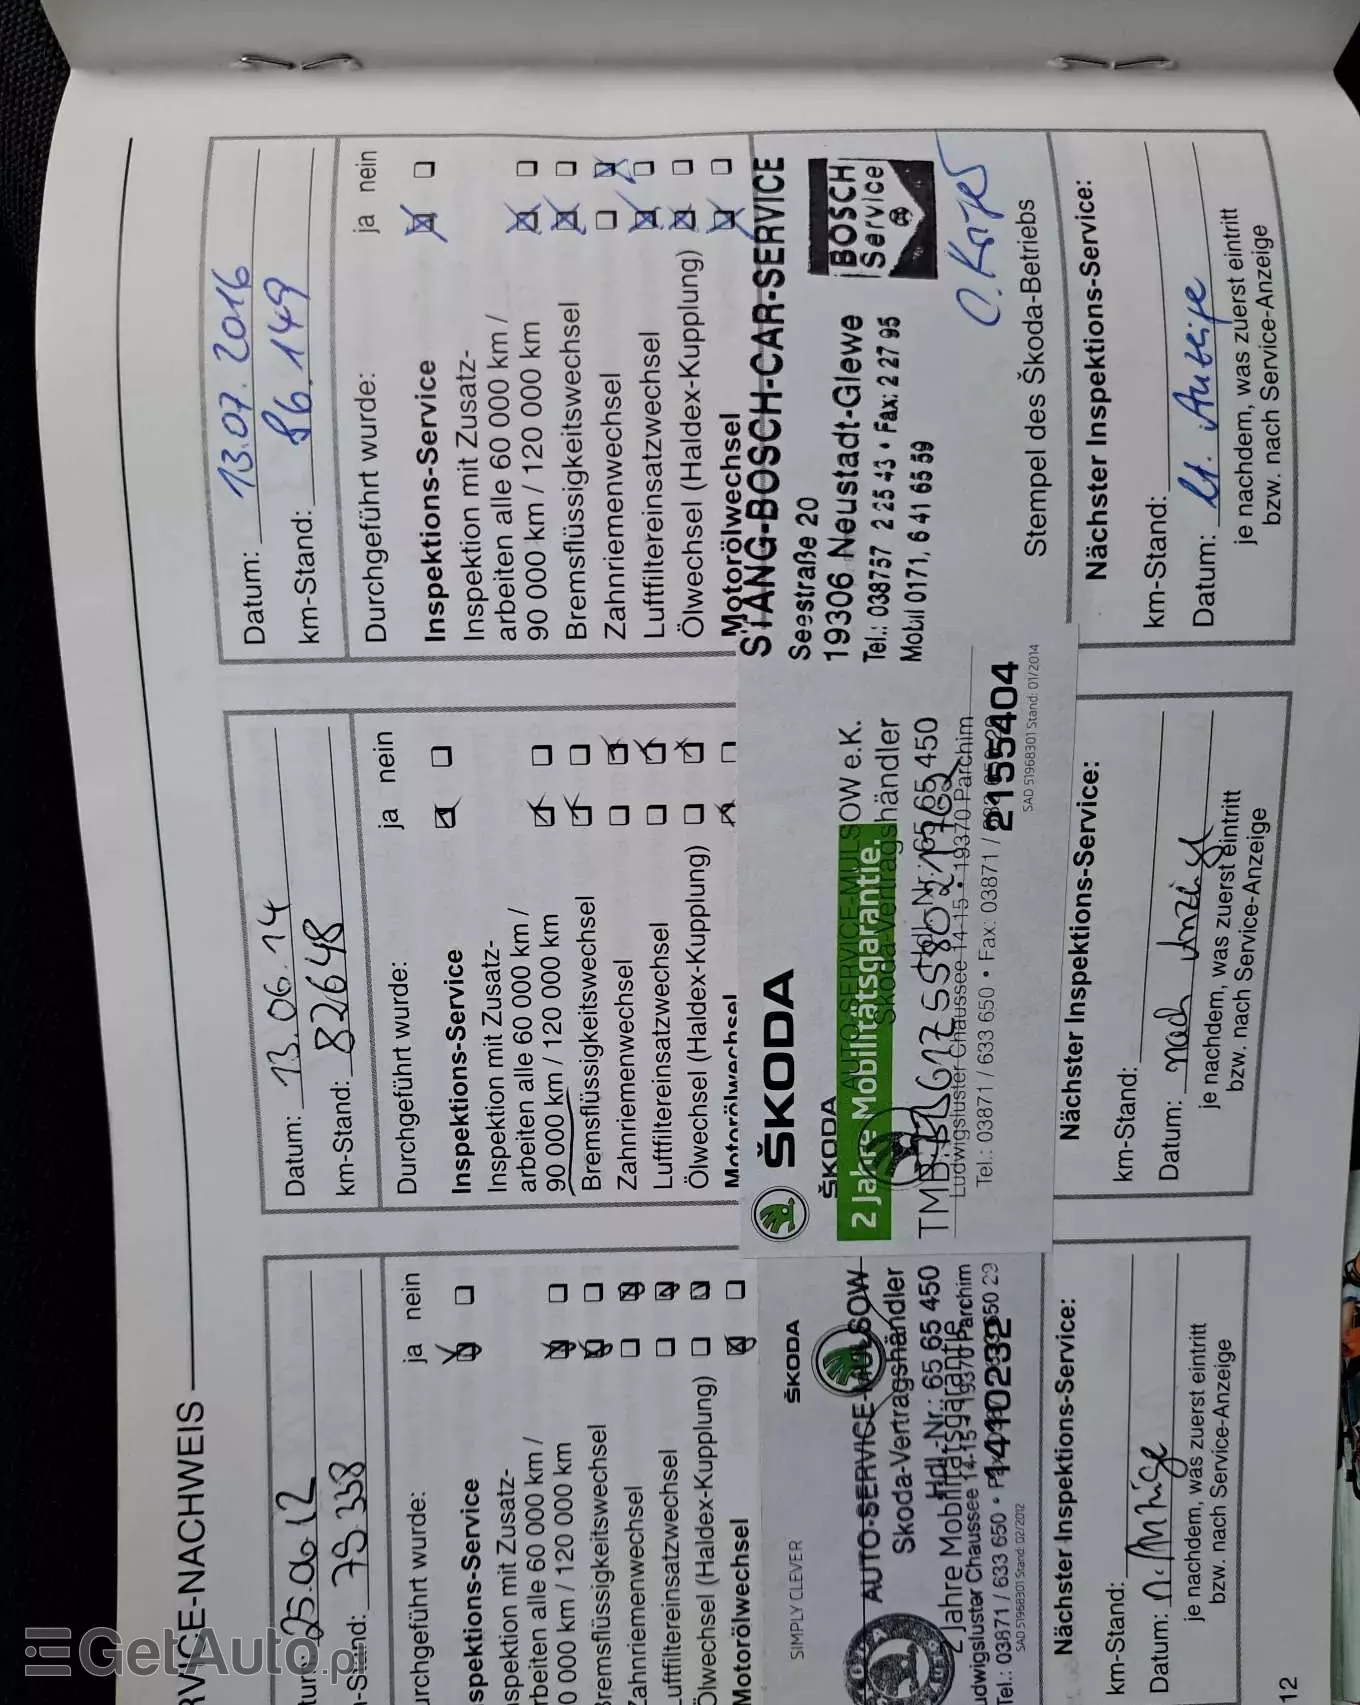 RVICE-NACHWEIS
tum: 25.06.12
-Stand: 79 338
urchgeführt wurde:
ja nein
spektions-Service
spektion mit Zusatz-
rbeiten alle 60 000 km /
0 000 km / 120 000 km
remsflüssigkeitswechsel
ahnriemenwechsel
uftfiltereinsatzwechsel
Ölwechsel (Haldex-Kupplung)
Motorölwechsel
SIMPLY CLEVER
ŠKODA
AUTO-SERVICE-MULSOW
Skoda-Vertragshändler
Hdl.-Nr.: 65 65 450
2 Jahre Mobilitätsgarantie
udwigsluster Chaussee 14-15 • 19370 Parchim
el.: 03871 / 633 650 •
1410232
SAD 51968301 Stand: 02/2012
Nächster Inspektions-Service:
km-Stand:
Datum:
je nachdem, was zuerst eintritt
bzw. nach Service-Anzeige
12
Datum: 13.06.14
km-Stand: 82648
Durchgeführt wurde:
ja nein
Inspektions-Service
Inspektion mit Zusatz-
arbeiten alle 60 000 km /
90 000 km / 120 000 km
Bremsflüssigkeitswechsel
Zahnriemenwechsel
Luftfiltereinsatzwechsel
Ölwechsel (Haldex-Kupplung)
Motorölwechsel
ŠKODA
ŠKODA
AUTO-SERVICE-MULSOW e.K.
2 Jahre Mobilitätsgarantie.
Skoda-Vertragshändler
65 65 450
Ludwigsluster Chaussee 14-15 • 19370 Parchim
Tel.: 03871 / 633 650 • Fax: 03871 /
2155404
SAD 51968301 Stand: 01/2014
Nächster Inspektions-Service:
km-Stand:
Datum: nach Anzeige
je nachdem, was zuerst eintritt
bzw. nach Service-Anzeige
Datum: 13.07.2016
km-Stand: 86.149
Durchgeführt wurde:
ja nein
Inspektions-Service
Inspektion mit Zusatz-
arbeiten alle 60 000 km /
90 000 km / 120 000 km
Bremsflüssigkeitswechsel
Zahnriemenwechsel
Luftfiltereinsatzwechsel
Ölwechsel (Haldex-Kupplung)
Motorölwechsel
STANG-BOSCH-CAR-SERVICE
Seestraße 20
19306 Neustadt-Glewe
Tel.: 038757 2 25 43 • Fax: 2 27 95
Mobil 0171, 6 41 65 59
BOSCH
Service
Stempel des Škoda-Betriebs
Nächster Inspektions-Service:
km-Stand:
Datum: lt. Anzeige
je nachdem, was zuerst eintritt
bzw. nach Service-Anzeige
GetAuto.pl